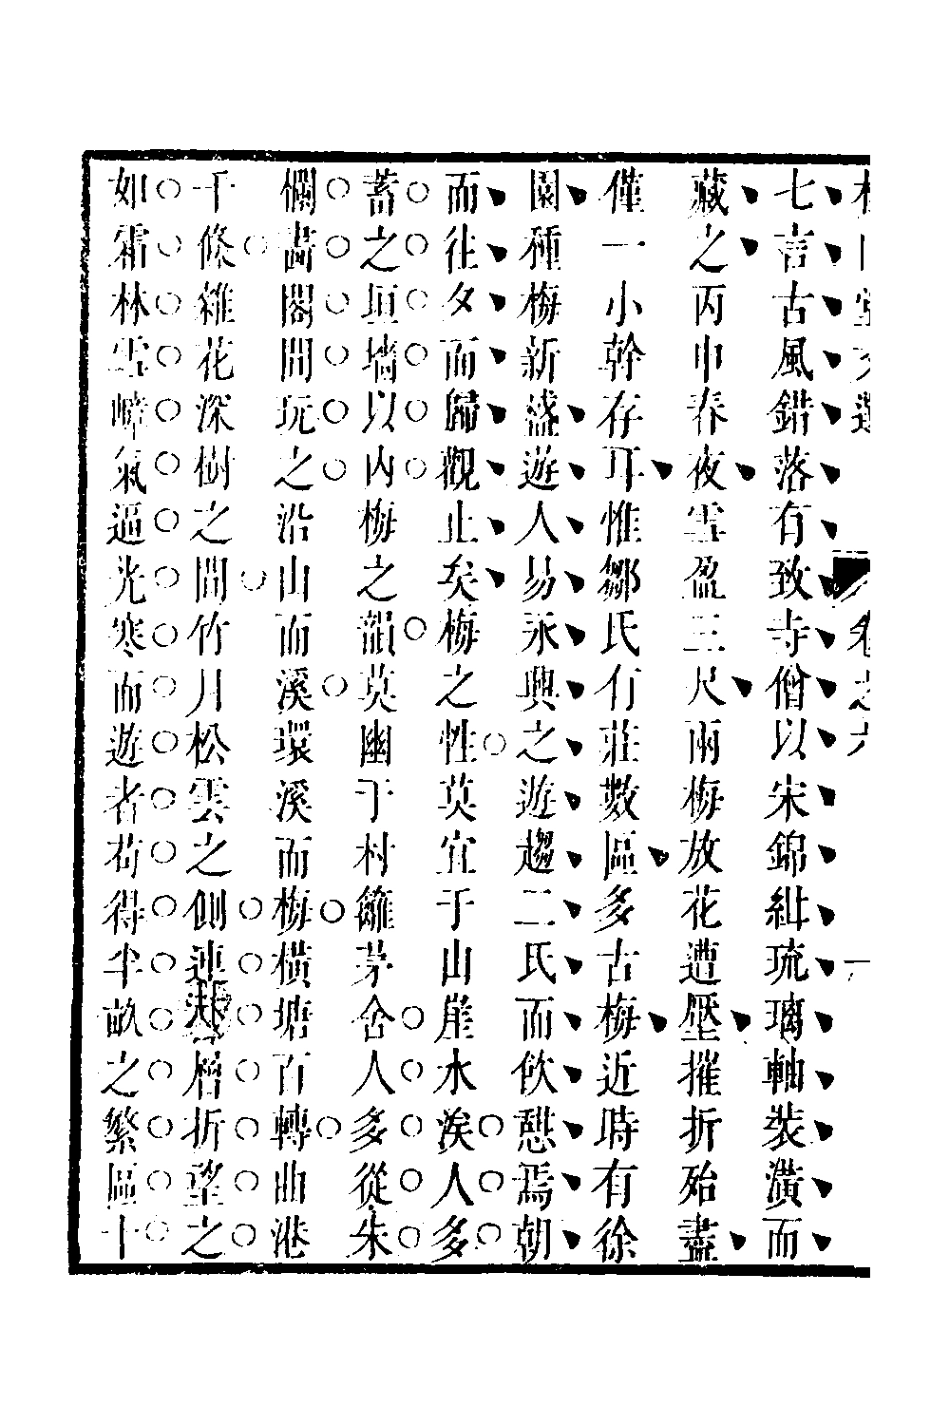 七言古風錯落有致寺僧以宋錦紕琉璃軸裝潢而
藏之丙申春夜雪盈三尺兩梅放花遭壓摧折殆盡
僅一小幹存耳惟鄒氏有莊數區多古梅近時有徐
園種梅新盛遊人易永興之遊趨二氏而飲憇焉朝
而往夕而歸觀止矣梅之性莫宜于山崖水涘人多
蓄之垣墻以內梅之韻莫幽于村籬茅舍人多從朱
欄畵閣間玩之沿山而溪環溪而梅橫塘百轉曲港
千條雜花深樹之間竹月松雲之側連楹層折望之
如霜林雪嶂氣逼光寒而遊者苟得半畝之繁區十